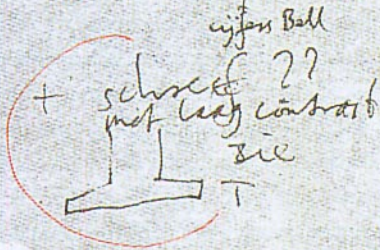 cijfers Bell
+ schreef ??
met laag contrast
zie
T